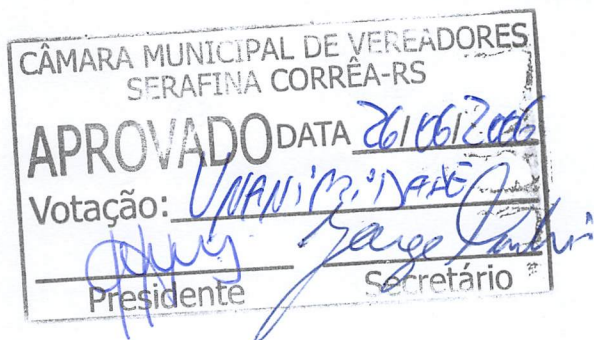 CÂMARA MUNICIPAL DE VEREADORES
SERAFINA CORRÊA-RS
APROVADO DATA 26/06/2006
Votação: UNANIMIDADE
Presidente Secretário